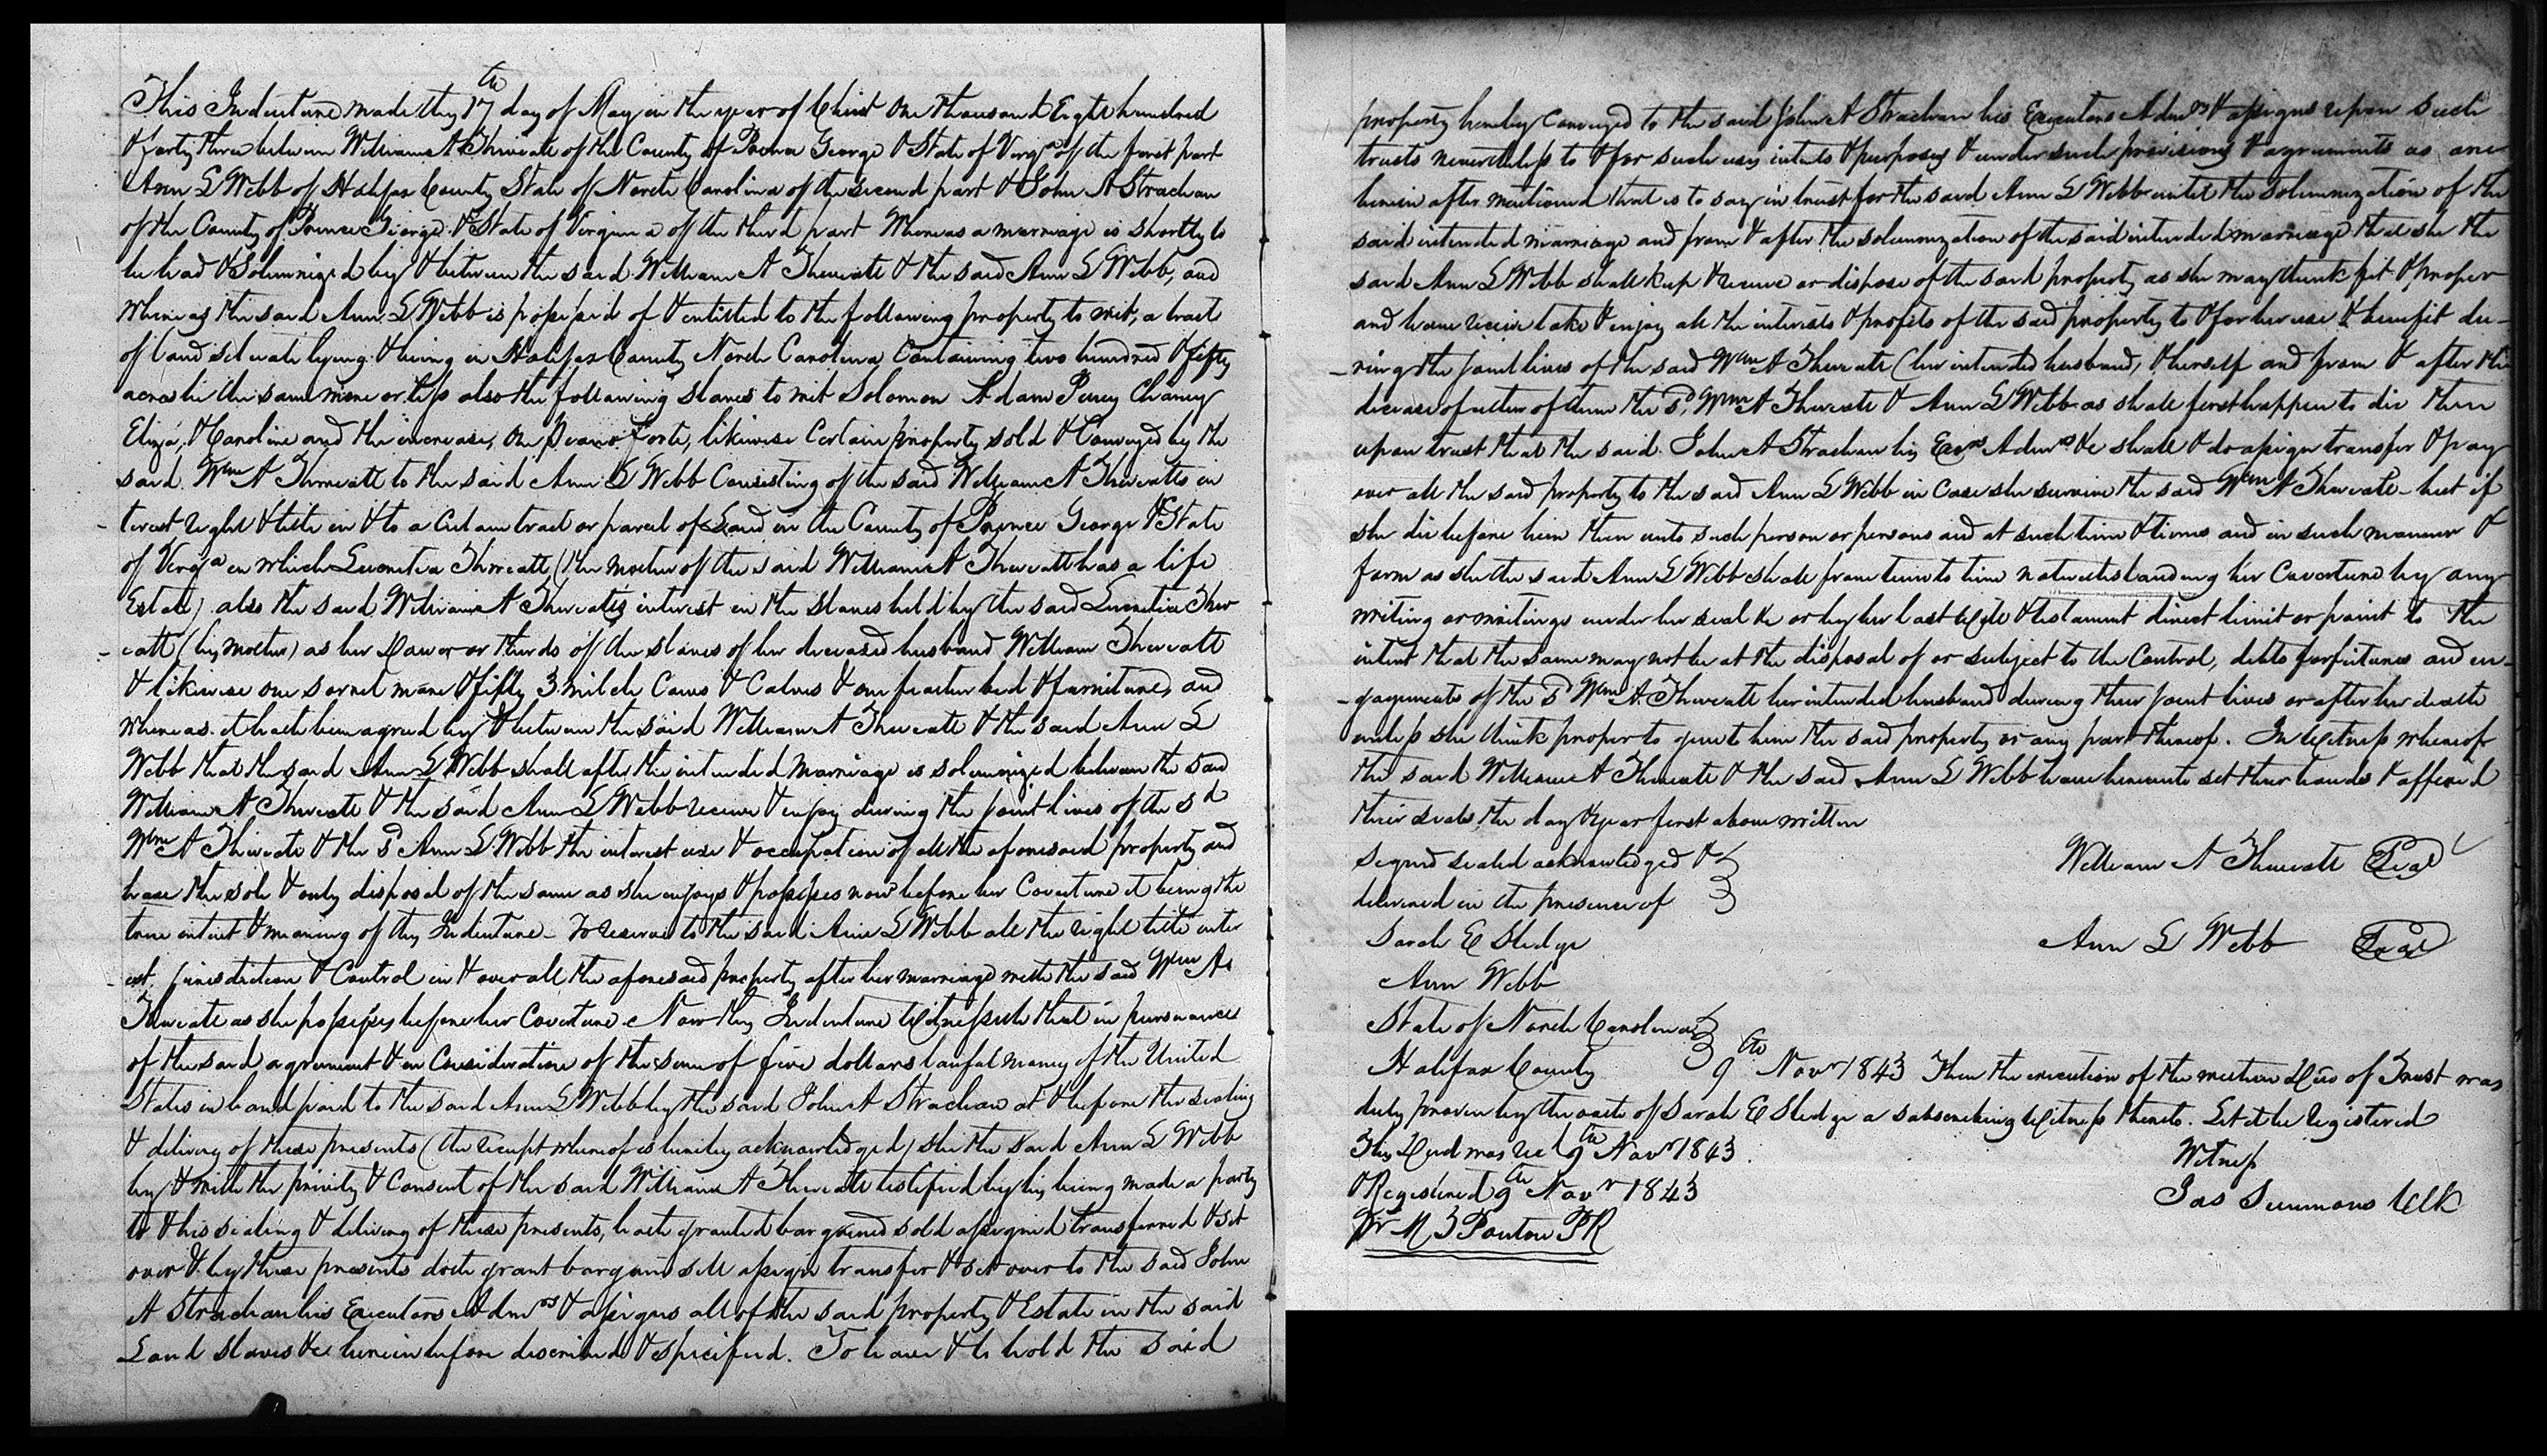 This Indenture made this 17th day of May in the year of Christ One thousand Eight hundred
& forty three between William A Threeatt of the County of Prince George & State of Virga of the first part
Ann L Webb of Halifax County State of North Carolina of the second part & John A Strachan
of the County of Prince George & State of Virginia of the third part Whereas a marriage is shortly to
be had & Solemnized by & between the said William A Threeatt & the said Ann L Webb, and
Whereas the said Ann L Webb is possessed of & entitled to the following property to wit, a tract
of land situate lying & being in Halifax County North Carolina Containing two hundred & fifty
acres be the same more or less also the following slaves to wit Solomon Adam Percy Chaney
Eliza, & Caroline and the increase, One Piano forte, likewise Certain property sold & Conveyed by the
said Wm A Threeatt to the said Ann L Webb Consisting of the said William A Threeatts in
terest right & title in & to a Certain tract or parcel of Land in the County of Prince George & State
of Virga in which Lucretia Threeatt (the mother of the said William A Threeatt has a life
Estate) also the said William A Threeatts interest in the slaves held by the said Lucretia Thre
eatt (his mother) as her Dower or thirds of the slaves of her deceased husband William Threeatt
& likewise one sorrel mare & filly 3 milch Cows & Calves & one feather bed & furniture, and
whereas it hath been agreed by & between the said William A Threeatt & the said Ann L
Webb that the said Ann L Webb shall after the intended marriage is solemnized between the said
William A Threeatt & the said Ann L Webb receive & enjoy during the joint lives of the sd
Wm A Threeatt & the sd Ann L Webb the interest use & occupation of all the aforesaid property and
have the sole & only disposal of the same as she enjoys & possesses now before her Coverture it being the
true intent & meaning of this Indenture - To reserve to the said Ann L Webb all the right title inter
est, jurisdiction & Control in & over all the aforesaid property after her marriage with the said Wm A
Threeatt as she possesses before her Coverture. Now this Indenture Witnesseth that in pursuance
of the said agreement & in Consideration of the sum of five dollars lawful money of the United
States in hand paid to the said Ann L Webb by the said John A Strachan at & before the sealing
& delivery of these presents (the receipt whereof is hereby acknowledged) she the said Ann L Webb
by & with the privity & Consent of the said William A Threeatt testified by his being made a party
to & his sealing & delivery of these presents, hath granted bargained sold assigned transferred & set
over & by these presents doth grant bargain sell assign transfer & set over to the said John
A Strachan his Executors Admrs & assigns all of the said property & Estate in the said
Land slaves &c herein before described & specified. To have & to hold the said
property hereby Conveyed to the said John A Strachan his Executors Admrs & assigns upon such
trusts nevertheless to & for such uses intents & purposes & under such provisions & agreements as are
herein after mentioned that is to say in trust for the said Ann L Webb until the solemnization of the
said intended marriage and from & after the solemnization of the said intended marriage that she the
said Ann L Webb shall keep & receive or dispose of the said property as she may think fit & proper
and have receive take & enjoy all the interests & profits of the said property to & for her use & benefit du-
-ring the joint lives of the said Wm A Threeatt (her intended husband) & herself and from & after the
decease of either of them the sd Wm A Threeatt & Ann L Webb as shall first happen to die then
upon trust that the said John A Strachan his Exrs Admrs &c shall & do assign transfer & pay
over all the said property to the said Ann L Webb in Case she survive the said Wm A Threeatt - but if
she die before him then unto such person or persons and at such time & times and in such manner &
form as she the said Ann L Webb shall from time to time notwithstanding her Coverture by any
writing or writings under her seal &c or by her last Will & testament direct limit or point to the
intent that the same may not be at the disposal of or subject to the Control, debts forfeitures and en-
-gagements of the sd Wm A Threeatt her intended husband during their joint lives or after her death
unless she think proper to give to him the said property or any part thereof. In Witness whereof
the said William A Threeatt & the said Ann L Webb have hereunto set their hands & affixed
their seals the day & year first above written
Signed sealed acknowledged &
delivered in the presence of
William A Threeatt Seal
Sarah E Sledge
Ann L Webb Seal
Ann Webb
State of North Carolina
Halifax County 9th Novr 1843 Then the execution of the within Deed of Trust was
duly proven by the oath of Sarah E Sledge a subscribing Witness thereto. Let it be registered
This Deed was recd 9th Novr 1843.
Witness
& Registered 9th Novr 1843
Jas Simmons Clk
Pr M T Ponton PR